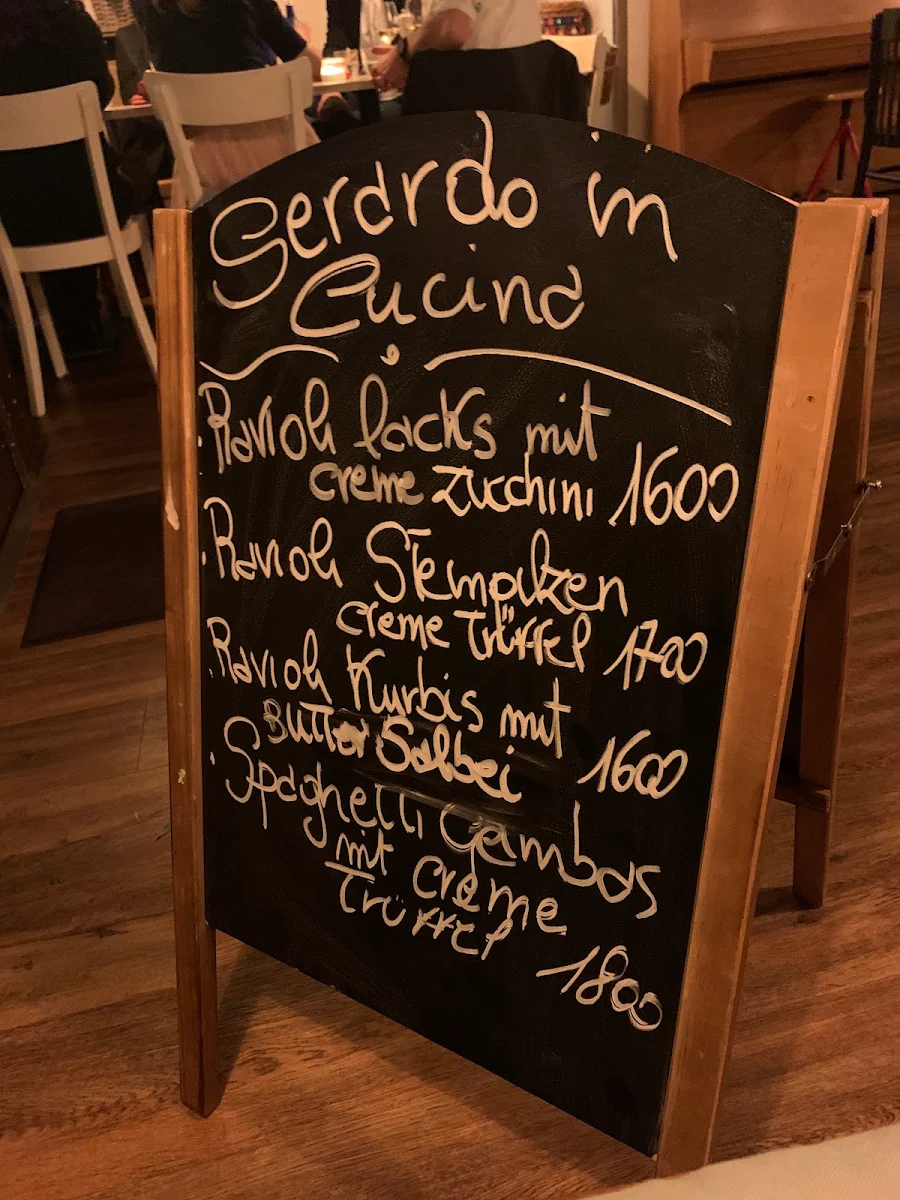 Gerardo in
Cucina
Ravioli lachs mit
creme Zucchini 1600
Ravioli Steinpilzen
creme Trüffel 1700
Ravioli Kurbis mit
Butter Salbei 1600
Spaghetti Gambas
mit creme
Trüffel
1800